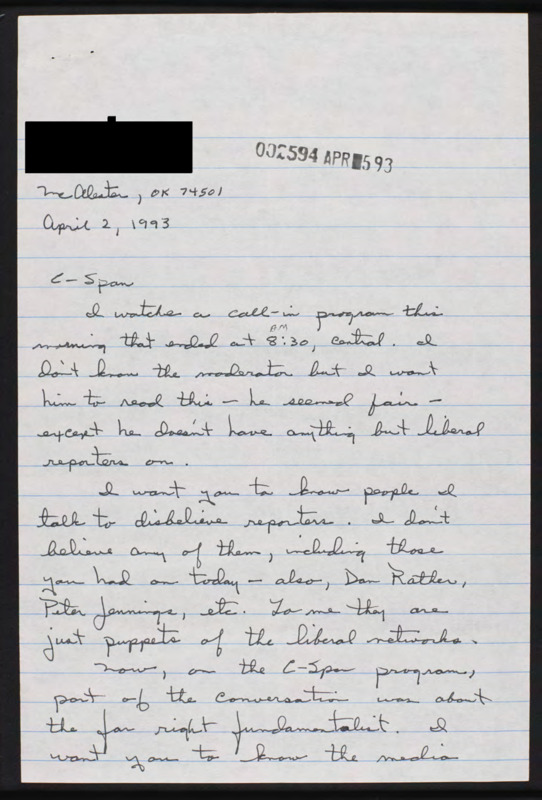 002594 APR 5 93
McAlester, OK 74501
April 2, 1993
C-Span
I watched a call-in program this
morning that ended at 8:30, central. I
AM
don't know the moderator but I want
him to read this – he seemed fair –
except he doesn't have anything but liberal
reporters on.
I want you to know people I
talk to disbelieve reporters. I don't
believe any of them, including those
you had on today – also, Dan Rather,
Peter Jennings, etc. To me they are
just puppets of the liberal networks.
Now, on the C-Span program,
part of the conversation was about
the far right fundamentalist. I
want you to know the media